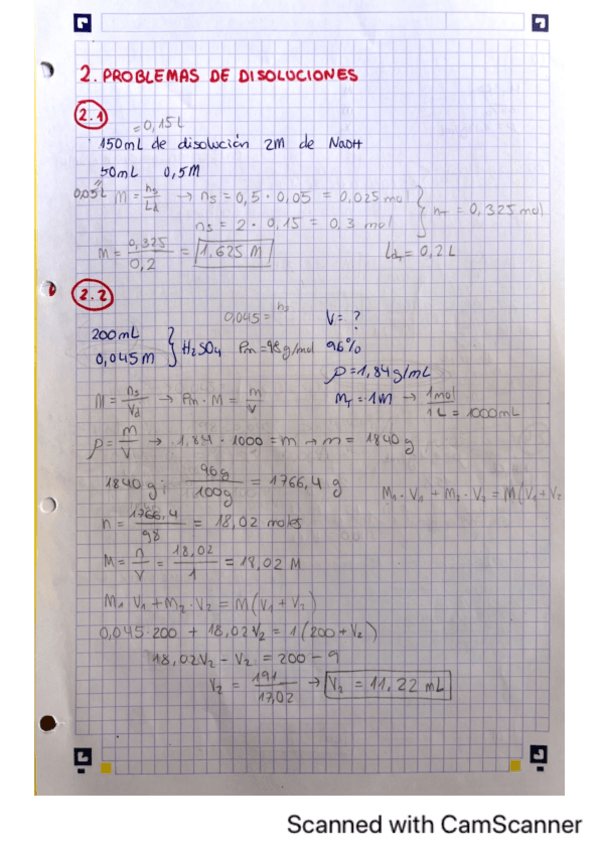 2. PROBLEMAS DE DISOLUCIONES
2.1
= 0,15 L
150 mL de disolución 2M de NaOH
50 mL 0,5 M
0,05 L M = ns/Ld → ns = 0,5 · 0,05 = 0,025 mol } nT = 0,325 mol
ns = 2 · 0,15 = 0,3 mol
M = 0,325/0,2 = 1,625 M LdT = 0,2 L
2.2
0,045 = ns V = ?
200 mL } H2SO4 Pm = 98 g/mol 96%
0,045 M
ρ = 1,84 g/mL
M = ns/Vd → Pm · M = m/V MT = 1M → 1 mol/1 L = 1000 mL
ρ = m/V → 1,84 · 1000 = m → m = 1840 g
1840 g · 96g/100g = 1766,4 g M1 · V1 + M2 · V2 = M(V1 + V2
n = 1766,4/98 = 18,02 moles
M = n/V = 18,02/1 = 18,02 M
M1 · V1 + M2 · V2 = M(V1 + V2)
0,045 · 200 + 18,02V2 = 1(200 + V2)
18,02V2 - V2 = 200 - 9
V2 = 191/17,02 → V2 = 11,22 mL
Scanned with CamScanner